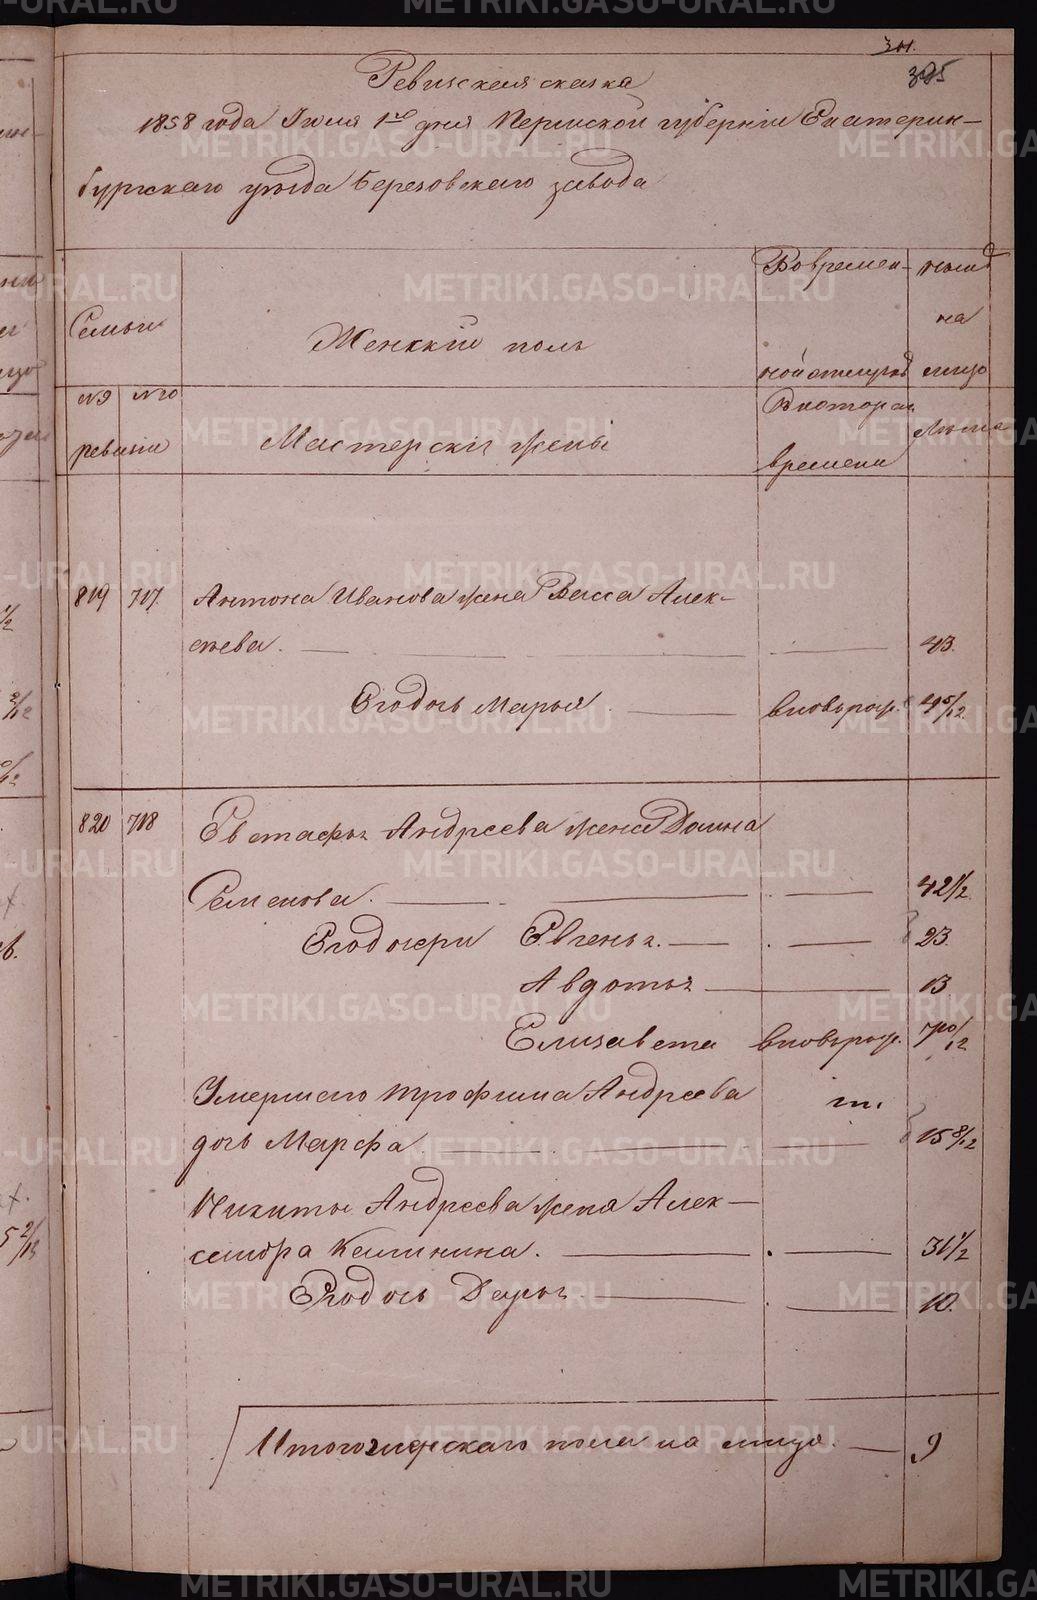 301.
395
Ревизская сказка
1858 года Июня 1го дня Пермской губернии Екатерин-
бургскаго уезда Березовскаго завода
Семьи
Женскій полъ
Во времен-
ной отлучке
ныне
на
лицо
№ 9 № 10
ревизіи
Мастерскіе жены
Скоторая
времени
Лета
819 717. Антона Иванова жена Васса Алек-
сеева. 43.
Егодочь Марья вновьрож. 4 5/12
820 718 Евстафья Андреева жена Домна
Семенова. 42 1/2
Егодочери Евгенья. 23.
Авдотья 13
Елизавета вновьрож. 7 10/12
Умершаго Трофима Андреева
дочь Марфа. 15 8/12
Никиты Андреева жена Алек-
сандра Калинина. 31 1/2
Егодочь Дарья. 10.
Итого женскаго пола на лицо. 9
METRIKI.GASO-URAL.RU